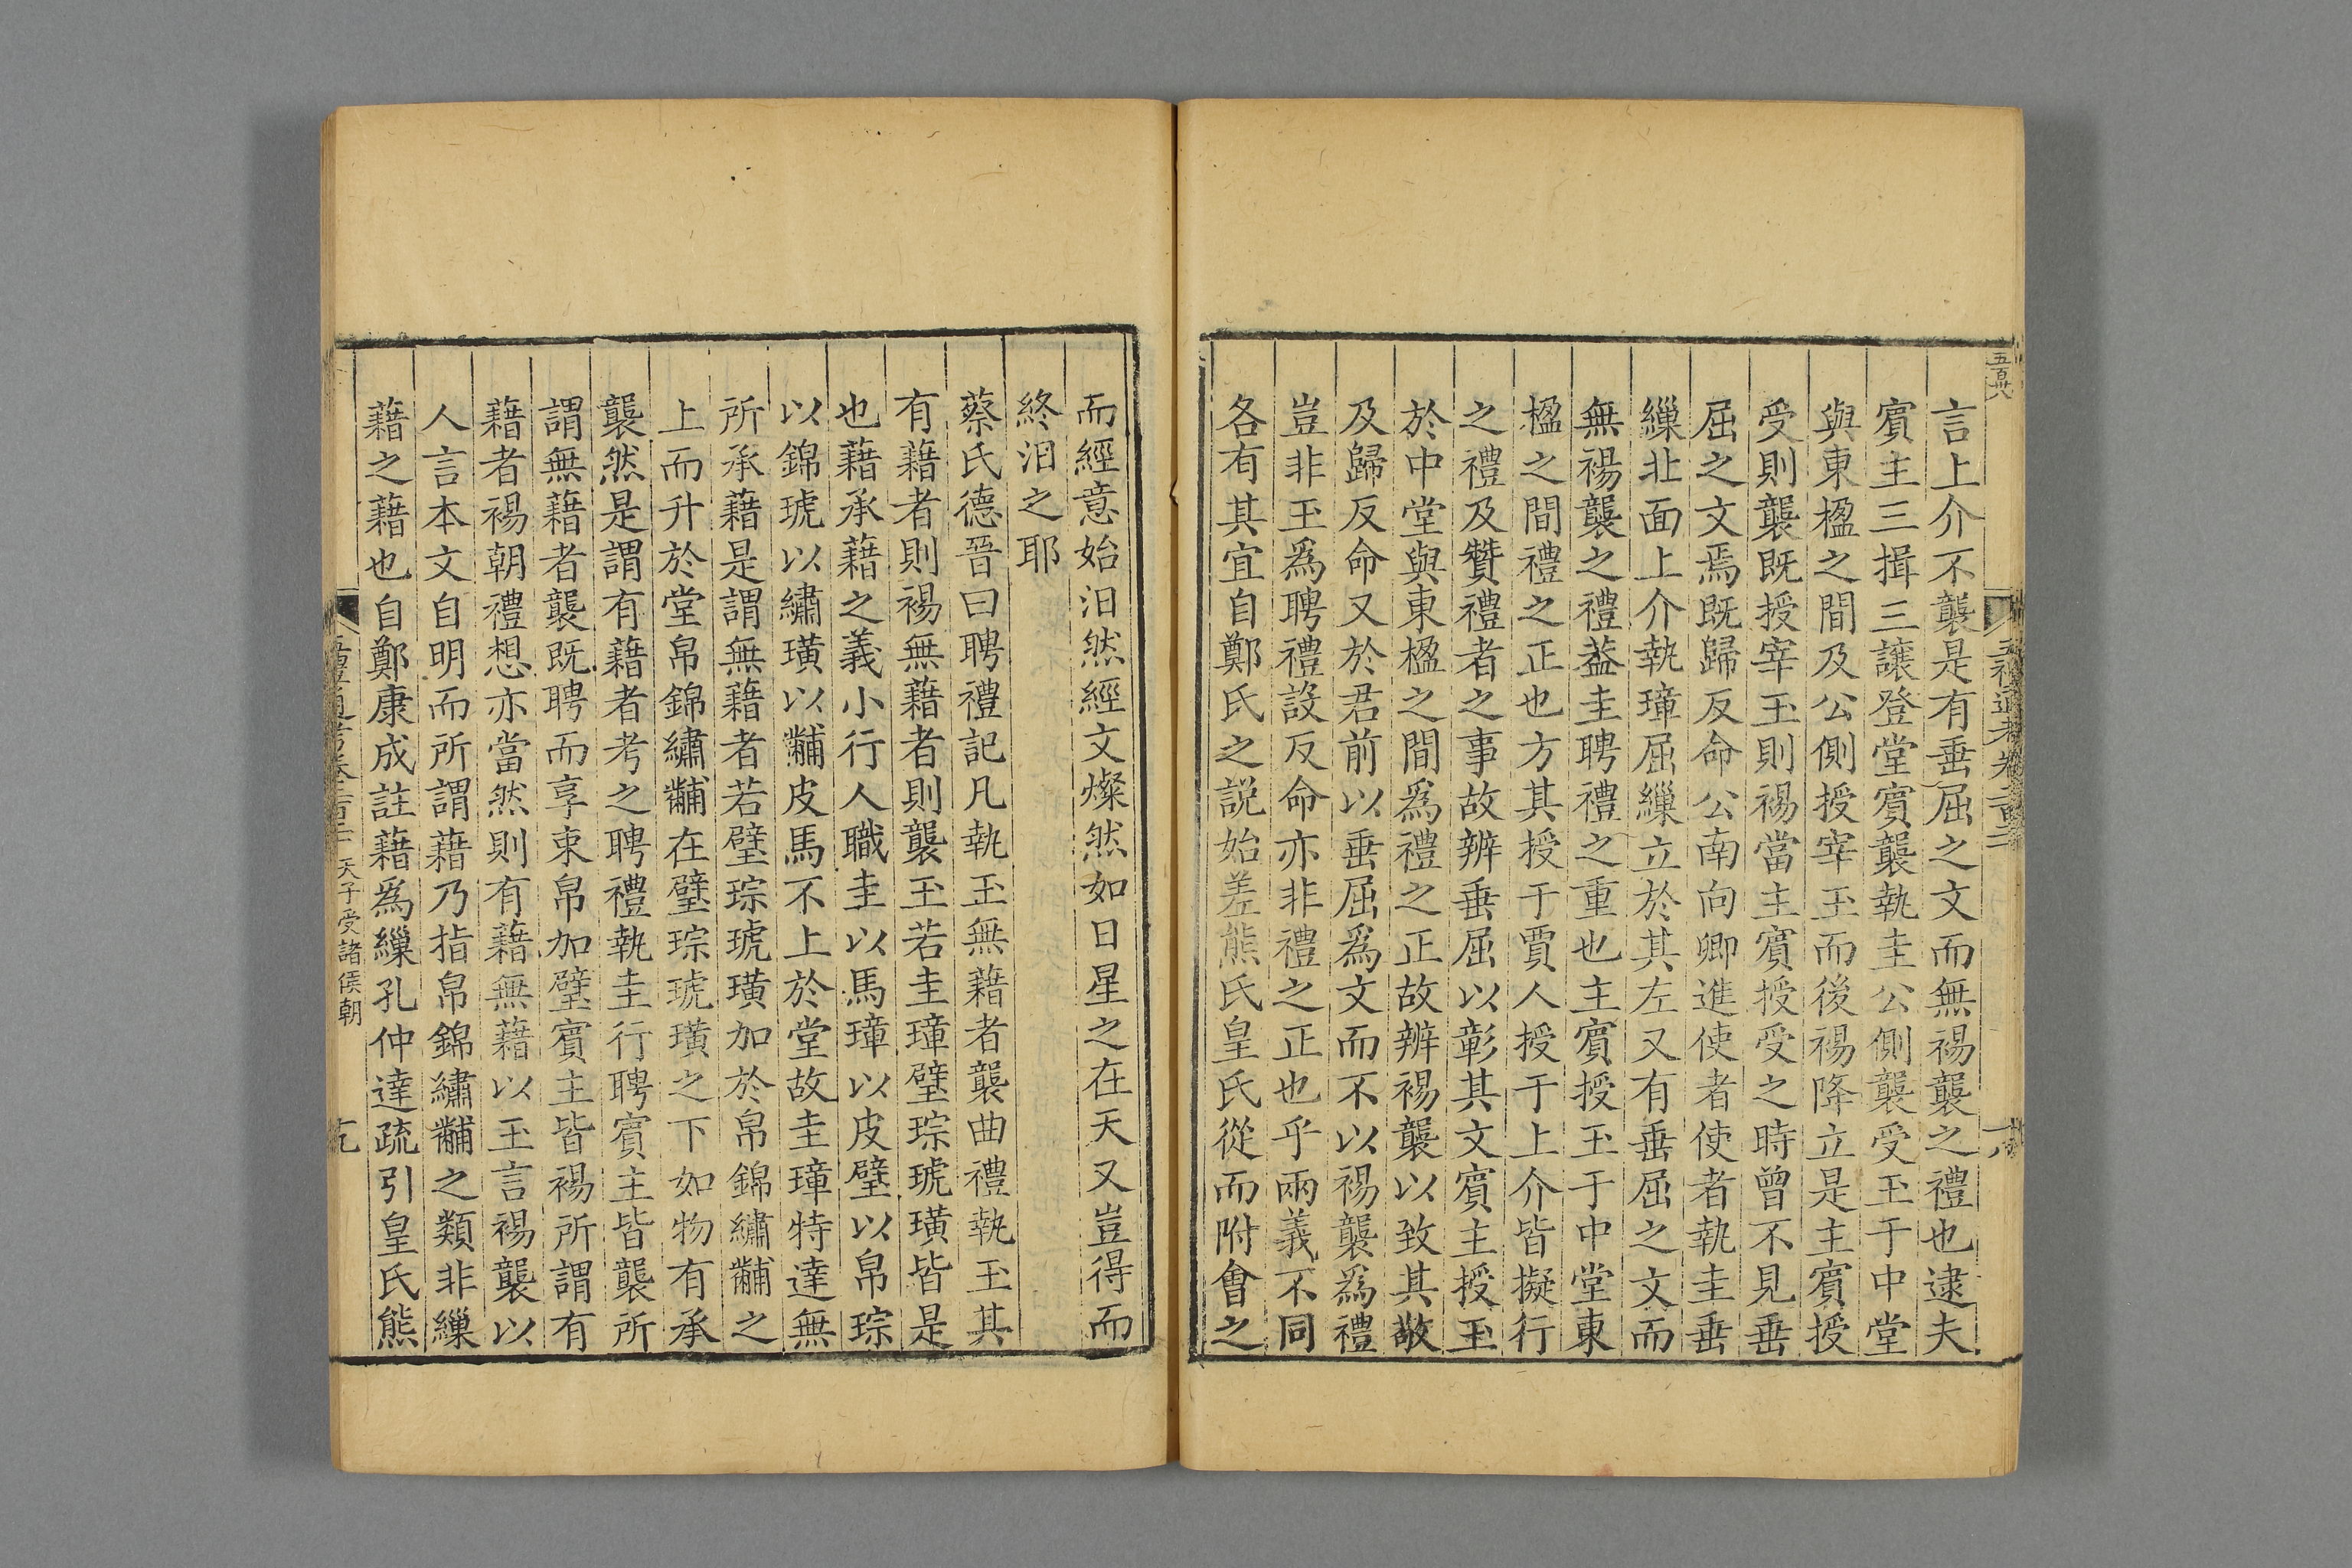 言上介不襲是有垂屈之文而無裼襲之禮也逮夫
賔主三揖三讓登堂賔襲執圭公側襲受玉于中堂
與東楹之間及公側授宰玉而後裼降立是主賔授
受則襲既授宰玉則裼當主賔授受之時曾不見垂
屈之文焉既歸反命公南向卿進使者使者執圭垂
繅北面上介執璋屈繅立於其左又有垂屈之文而
無裼襲之禮葢圭聘禮之重也主賔授玉于中堂東
楹之間禮之正也方其授于賈人授于上介皆擬行
之禮及贊禮者之事故辨垂屈以彰其文賔主授玉
於中堂與東楹之間爲禮之正故辨裼襲以致其敬
及歸反命又於君前以垂屈爲文而不以裼襲爲禮
豈非玉爲聘禮設反命亦非禮之正也乎兩義不同
各有其宜自鄭氏之説始差熊氏皇氏從而附會之
而經意始汨然經文燦然如日星之在天又豈得而
終汨之耶
蔡氏德晉曰聘禮記凡執玉無藉者襲曲禮執玉其
有藉者則裼無藉者則襲玉若圭璋璧琮琥璜皆是
也藉承藉之義小行人職圭以馬璋以皮璧以帛琮
以錦琥以繡璜以黼皮馬不上於堂故圭璋特達無
所承藉是謂無藉者若璧琮琥璜加於帛錦繡黼之
上而升於堂帛錦繡黼在璧琮琥璜之下如物有承
襲然是謂有藉者考之聘禮執圭行聘賔主皆襲所
謂無藉者襲既聘而享束帛加璧賔主皆裼所謂有
藉者裼朝禮想亦當然則有藉無藉以玉言裼襲以
人言本文自明而所謂藉乃指帛錦繡黼之類非繅
藉之藉也自鄭康成註藉爲繅孔仲達疏引皇氏熊
天子受諸侯朝